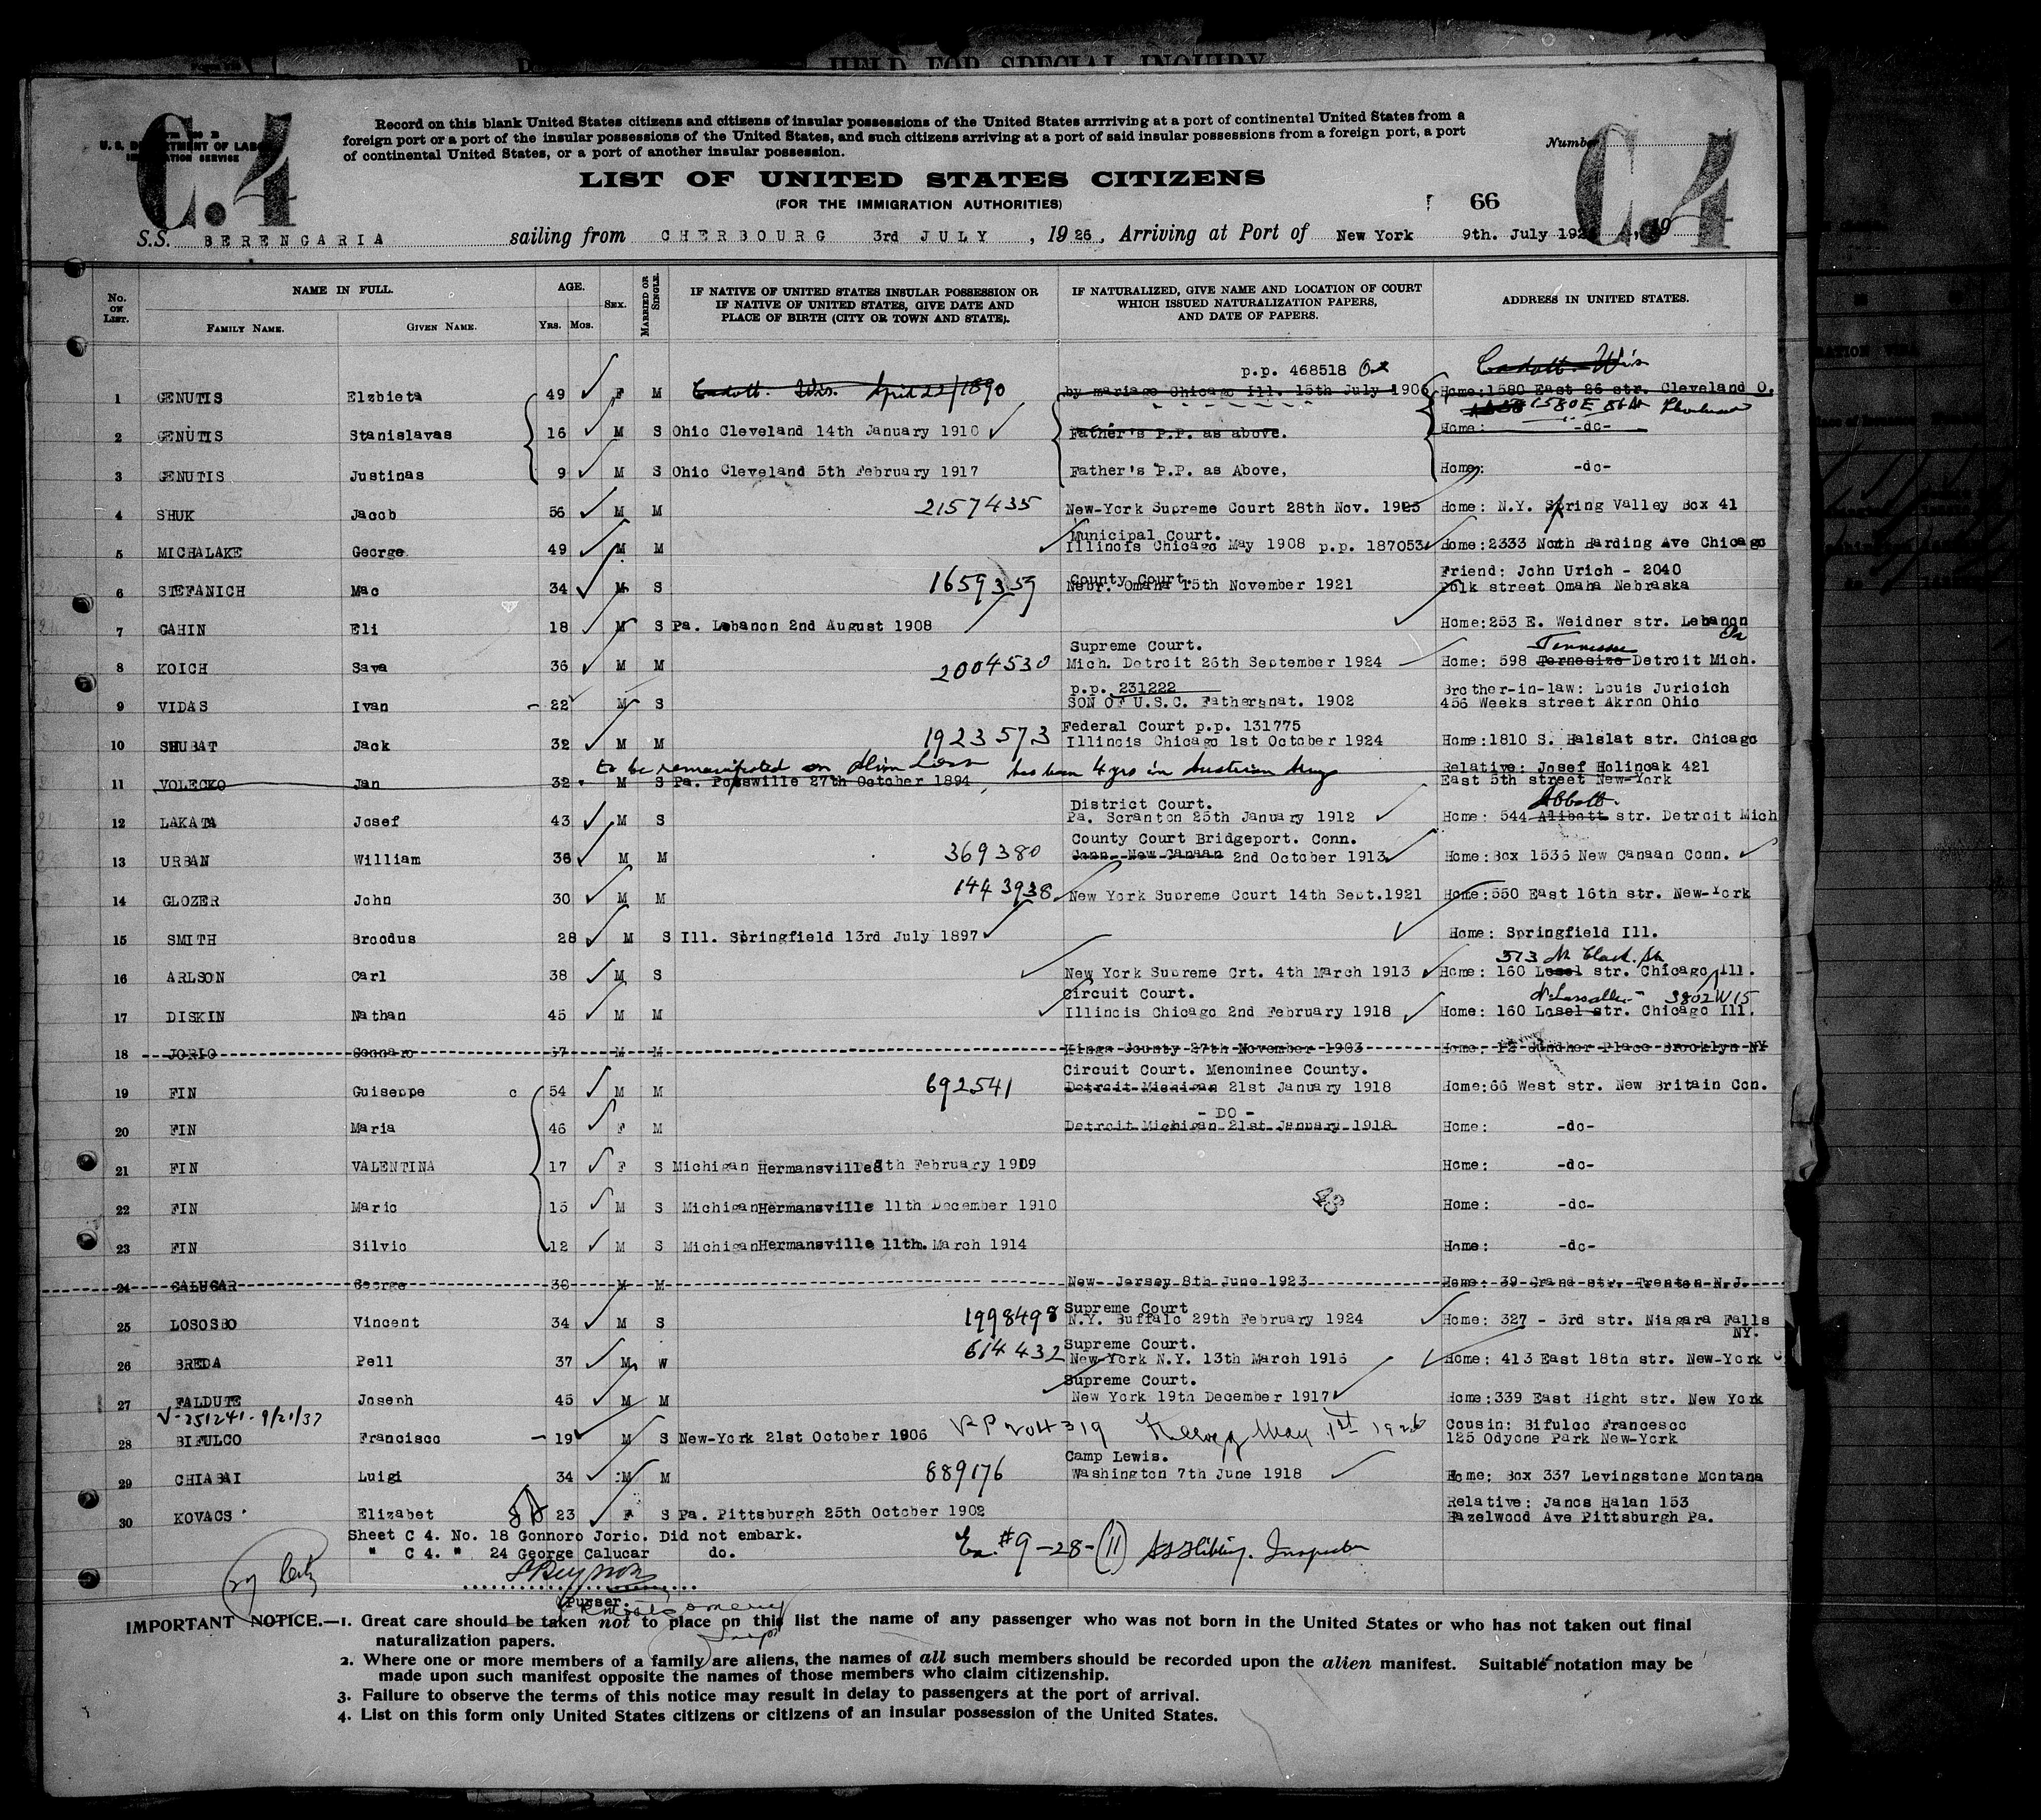 HELD FOR SPECIAL INQUIRY
C.4
U. S. DEPARTMENT OF LABOR
IMMIGRATION SERVICE
Record on this blank United States citizens and citizens of insular possessions of the United States arrriving at a port of continental United States from a
foreign port or a port of the insular possessions of the United States, and such citizens arriving at a port of said insular possessions from a foreign port, a port
of continental United States, or a port of another insular possession.
Number
C.4
LIST OF UNITED STATES CITIZENS
(FOR THE IMMIGRATION AUTHORITIES)
66
S.S. BERENGARIA sailing from CHERBOURG 3rd JULY, 1926, Arriving at Port of New York 9th. July 192 , 19
No. ON LIST. NAME IN FULL. AGE. SEX. MARRIED OR SINGLE. IF NATIVE OF UNITED STATES INSULAR POSSESSION OR IF NATIVE OF UNITED STATES, GIVE DATE AND PLACE OF BIRTH (CITY OR TOWN AND STATE). IF NATURALIZED, GIVE NAME AND LOCATION OF COURT WHICH ISSUED NATURALIZATION PAPERS, AND DATE OF PAPERS. ADDRESS IN UNITED STATES.
FAMILY NAME. GIVEN NAME. YRS. MOS.
p.p. 468518 Cadott Wis
1 GENUTIS Elzbieta 49 F M Cadott. Wis. April 22/1890 by mariage Chicago Ill. 15th July 1906 Home:1580 East 86 str. Cleveland O.
1580 E 86 St
2 GENUTIS Stanislavas 16 M S Ohio Cleveland 14th January 1910 Father's P.P. as above. Home: -do-
3 GENUTIS Justinas 9 M S Ohio Cleveland 5th February 1917 Father's P.P. as Above, Home: -do-
4 SHUK Jacob 56 M M 2157435 New-York Supreme Court 28th Nov. 1925 Home: N.Y. Spring Valley Box 41
Municipal Court.
5 MICHALAKE George 49 M M Illinois Chicago May 1908 p.p. 187053 Home:2333 North Harding Ave Chicago
County Court. Friend: John Urich - 2040
6 STEFANICH Mac 34 M S 1659359 Nebr. Omaha 15th November 1921 Polk street Omaha Nebraska
7 GAHIN Eli 18 M S Pa. Lebanon 2nd August 1908 Home:253 E. Weidner str. Lebanon Pa
Supreme Court. Tennessee
8 KOICH Sava 36 M M 2004530 Mich. Detroit 26th September 1924 Home: 598 Ternesize Detroit Mich.
p.p. 231222 Brother-in-law: Louis Juricich
9 VIDAS Ivan 22 M S SON OF U.S.C. Fathersnat. 1902 456 Weeks street Akron Ohio
Federal Court p.p. 131775
10 SHUBAT Jack 32 M M 1923573 Illinois Chicago 1st October 1924 Home:1810 S. Halslat str. Chicago
to be remanifested on Alien List has been 4 yrs in Austrian Army Relative: Josef Holincak 421
11 VOLECKO Jan 32 M S Pa. Pottswille 27th October 1894 East 5th street New-York
District Court. Abbott
12 LAKATA Josef 43 M S Pa. Scranton 25th January 1912 Home: 544 Alibott str. Detroit Mich
County Court Bridgeport. Conn.
13 URBAN William 36 M M 369380 Conn. New Canaan 2nd October 1913 Home:Box 1536 New Canaan Conn.
14 GLOZER John 30 M M 1443938 New York Supreme Court 14th Sept.1921 Home:550 East 16th str. New-York
15 SMITH Broodus 28 M S Ill. Springfield 13rd July 1897 Home: Springfield Ill.
513 N Clark St
16 ARLSON Carl 38 M S New York Supreme Crt. 4th March 1913 Home: 160 Losel str. Chicago Ill.
Circuit Court. 3802 W 15
17 DISKIN Nathan 45 M M Illinois Chicago 2nd February 1918 Home: 160 Losel str. Chicago Ill.
18 JORIO Gennaro 37 M M Kings County 27th November 1903 Home: 12 Place Brooklyn NY
Circuit Court. Menominee County.
19 FIN Guiseppe c 54 M M 692541 Detroit Michigan 21st January 1918 Home:66 West str. New Britain Con.
- DO -
20 FIN Maria 46 F M Detroit Michigan 21st January 1918 Home: -do-
21 FIN VALENTINA 17 F S Michigan Hermansville 8th February 1909 Home: -do-
22 FIN Mario 15 M S Michigan Hermansville 11th December 1910 Home: -do-
23 FIN Silvio 12 M S Michigan Hermansville 11th. March 1914 Home: -do-
24 CALUGAR George 30 M M New Jersey 8th June 1923 Home: 39 Grand str. Trenton N.J.
Supreme Court
25 LOSOSBO Vincent 34 M S 1998498 N.Y. Buffalo 29th February 1924 Home: 327 - 3rd str. Niagara Falls NY.
Supreme Court.
26 BREDA Pell 37 M W 614432 New-York N.Y. 13th March 1916 Home: 413 East 18th str. New-York
Supreme Court.
27 FALDUTE Joseph 45 M M New York 19th December 1917 Home:339 East Hight str. New York
V-251241-9/21/37 Cousin: Bifulco Francesco
28 BIFULCO Francisco 19 M S New-York 21st October 1906 May 1st 1926 125 Odyone Park New-York
Camp Lewis.
29 CHIABAI Luigi 34 M M 889176 Washington 7th June 1918 Home: Box 337 Levingstone Montana
Relative: Janos Halan 153
30 KOVACS Elizabet 23 F S Pa. Pittsburgh 25th October 1902 Hazelwood Ave Pittsburgh Pa.
Sheet C 4. No. 18 Gonnoro Jorio. Did not embark.
" C 4. " 24 George Calucar do.
Ex. #9-28-(11) Inspector
Purser.
IMPORTANT NOTICE.—1. Great care should be taken not to place on this list the name of any passenger who was not born in the United States or who has not taken out final
naturalization papers.
2. Where one or more members of a family are aliens, the names of all such members should be recorded upon the alien manifest. Suitable notation may be
made upon such manifest opposite the names of those members who claim citizenship.
3. Failure to observe the terms of this notice may result in delay to passengers at the port of arrival.
4. List on this form only United States citizens or citizens of an insular possession of the United States.